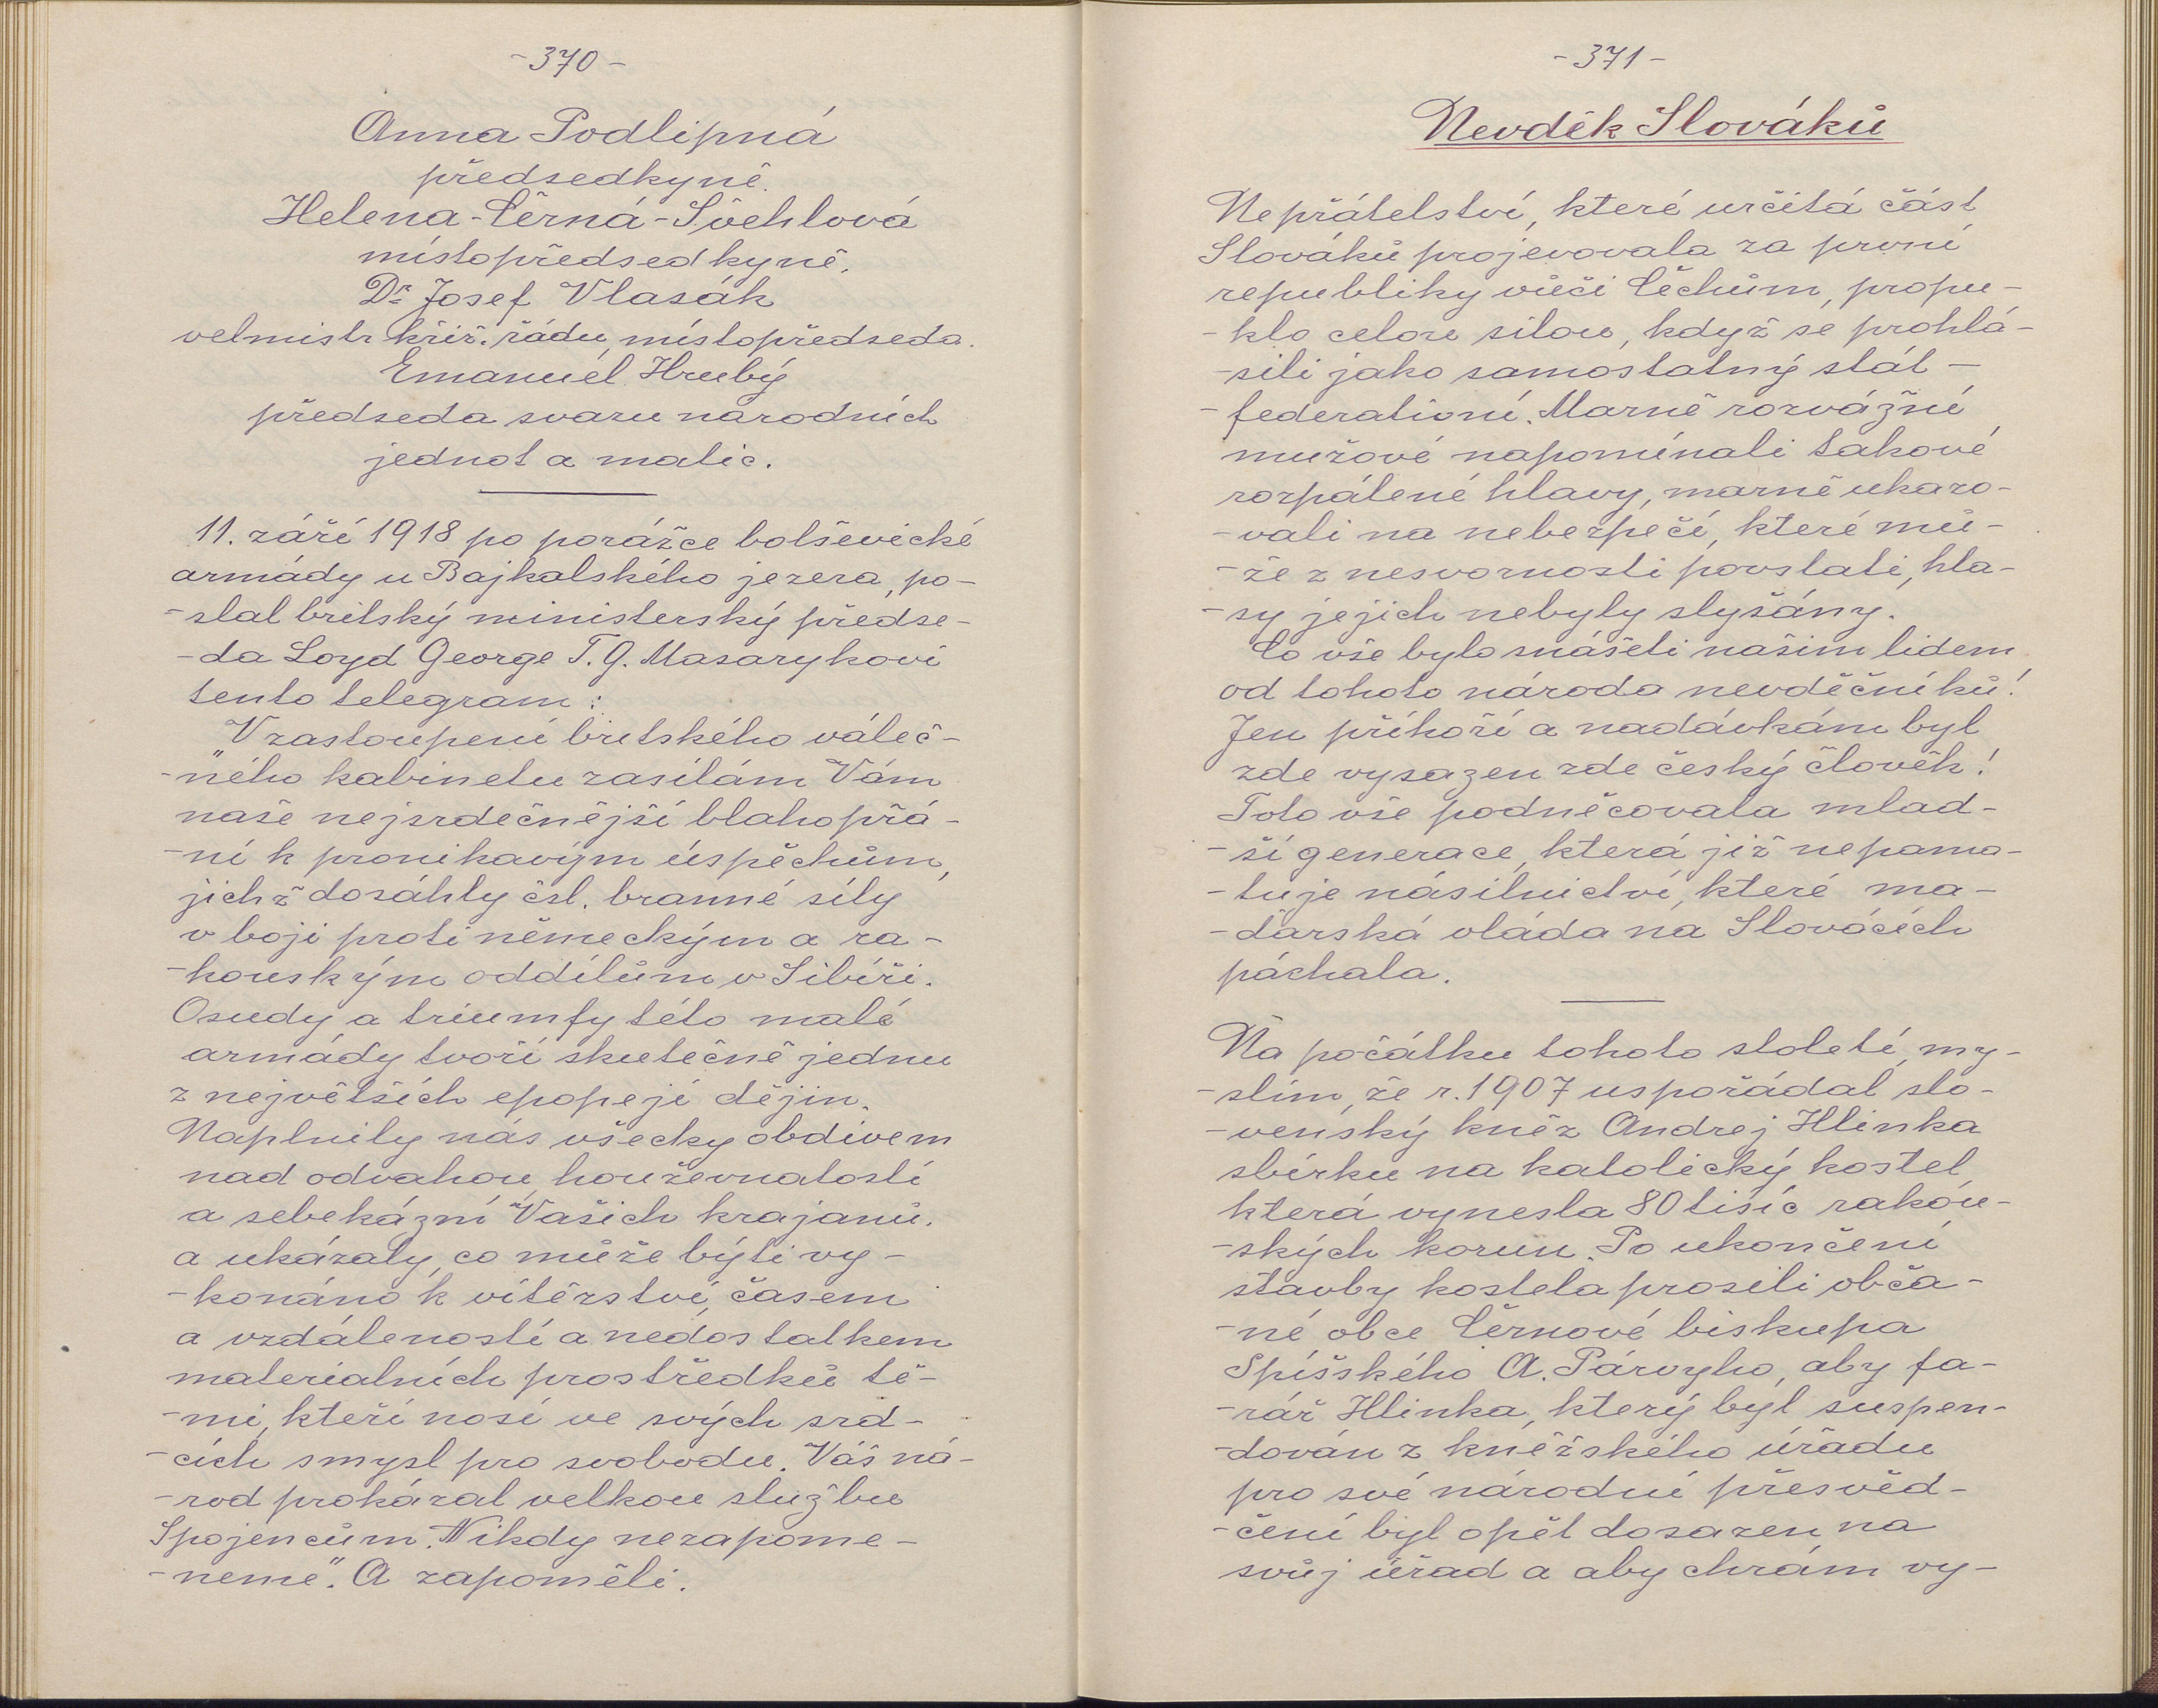 -370-
Anna Podlipná
předsedkyně.
Helena-Černá-Švehlová
místopředsedkyně.
Dr. Josef Vlasák
velmistr křiž. řádu, místopředseda.
Emanuel Hrubý
předseda svazu národních
jednot a matic.
11. září 1918 po porážce bolševické
armády u Bajkalského jezera, po-
-slal britský ministerský předse-
-da Loyd George T. G. Masarykovi
tento telegram:
„V zastoupení britského váleč-
-ného kabinetu zasílám Vám
naše nejsrdečnější blahopřá-
-ní k pronikavým úspěchům,
jichž dosáhly čsl. branné síly
v boji proti německým a ra-
-kouským oddílům v Sibíři.
Osudy a triumfy této malé
armády tvoří skutečně jednu
z největších epopejí dějin.
Naplnily nás všecky obdivem
nad odvahou, houževnatostí
a sebekázní Vašich krajanů.
a ukázaly, co může býti vy-
-konáno k vítězství, časem
a vzdáleností a nedostatkem
materialních prostředků tě-
-mi, kteří nosí ve svých srd-
-cích smysl pro svobodu. Váš ná-
-rod prokázal velkou službu
Spojencům. Nikdy nezapome-
-neme". A zapoměli.
-371-
Nevděk Slováků
Nepřátelství, které určitá část
Slováků projevovala za první
republiky vůči Čechům, propu-
-klo celou silou, když se prohlá-
-sili jako samostatný stát -
-federativní. Marně rozvážné
mužové napomínali takové
rozpálené hlavy, marně ukazo-
-vali na nebezpečí, které mů-
-že z nesvornosti povstati, hla-
-sy jejich nebyly slyšány.
Co vše bylo snášeti našim lidem
od tohoto národa nevděčníků!
Jen příkoří a nadávkám byl
zde vysazen zde český člověk!
Toto vše podněcovala mlad-
-ší generace, která již nepama-
-tuje násilnictví, které ma-
-ďarská vláda na Slovácích
páchala.
Na počátku tohoto století, my-
-slím, že r. 1907 uspořádal slo-
-venský kněz Andrej Hlinka
sbírku na katolický kostel
která vynesla 80 tisíc rakou-
-ských korun. Po ukončení
stavby kostela prosili obča-
-né obce Černové biskupa
Spišského A. Párvyho, aby fa-
-rář Hlinka, který byl suspen-
-dován z kněžského úřadu
pro své národní přesvěd-
-čení byl opět dosazen na
svůj úřad a aby chrám vy-